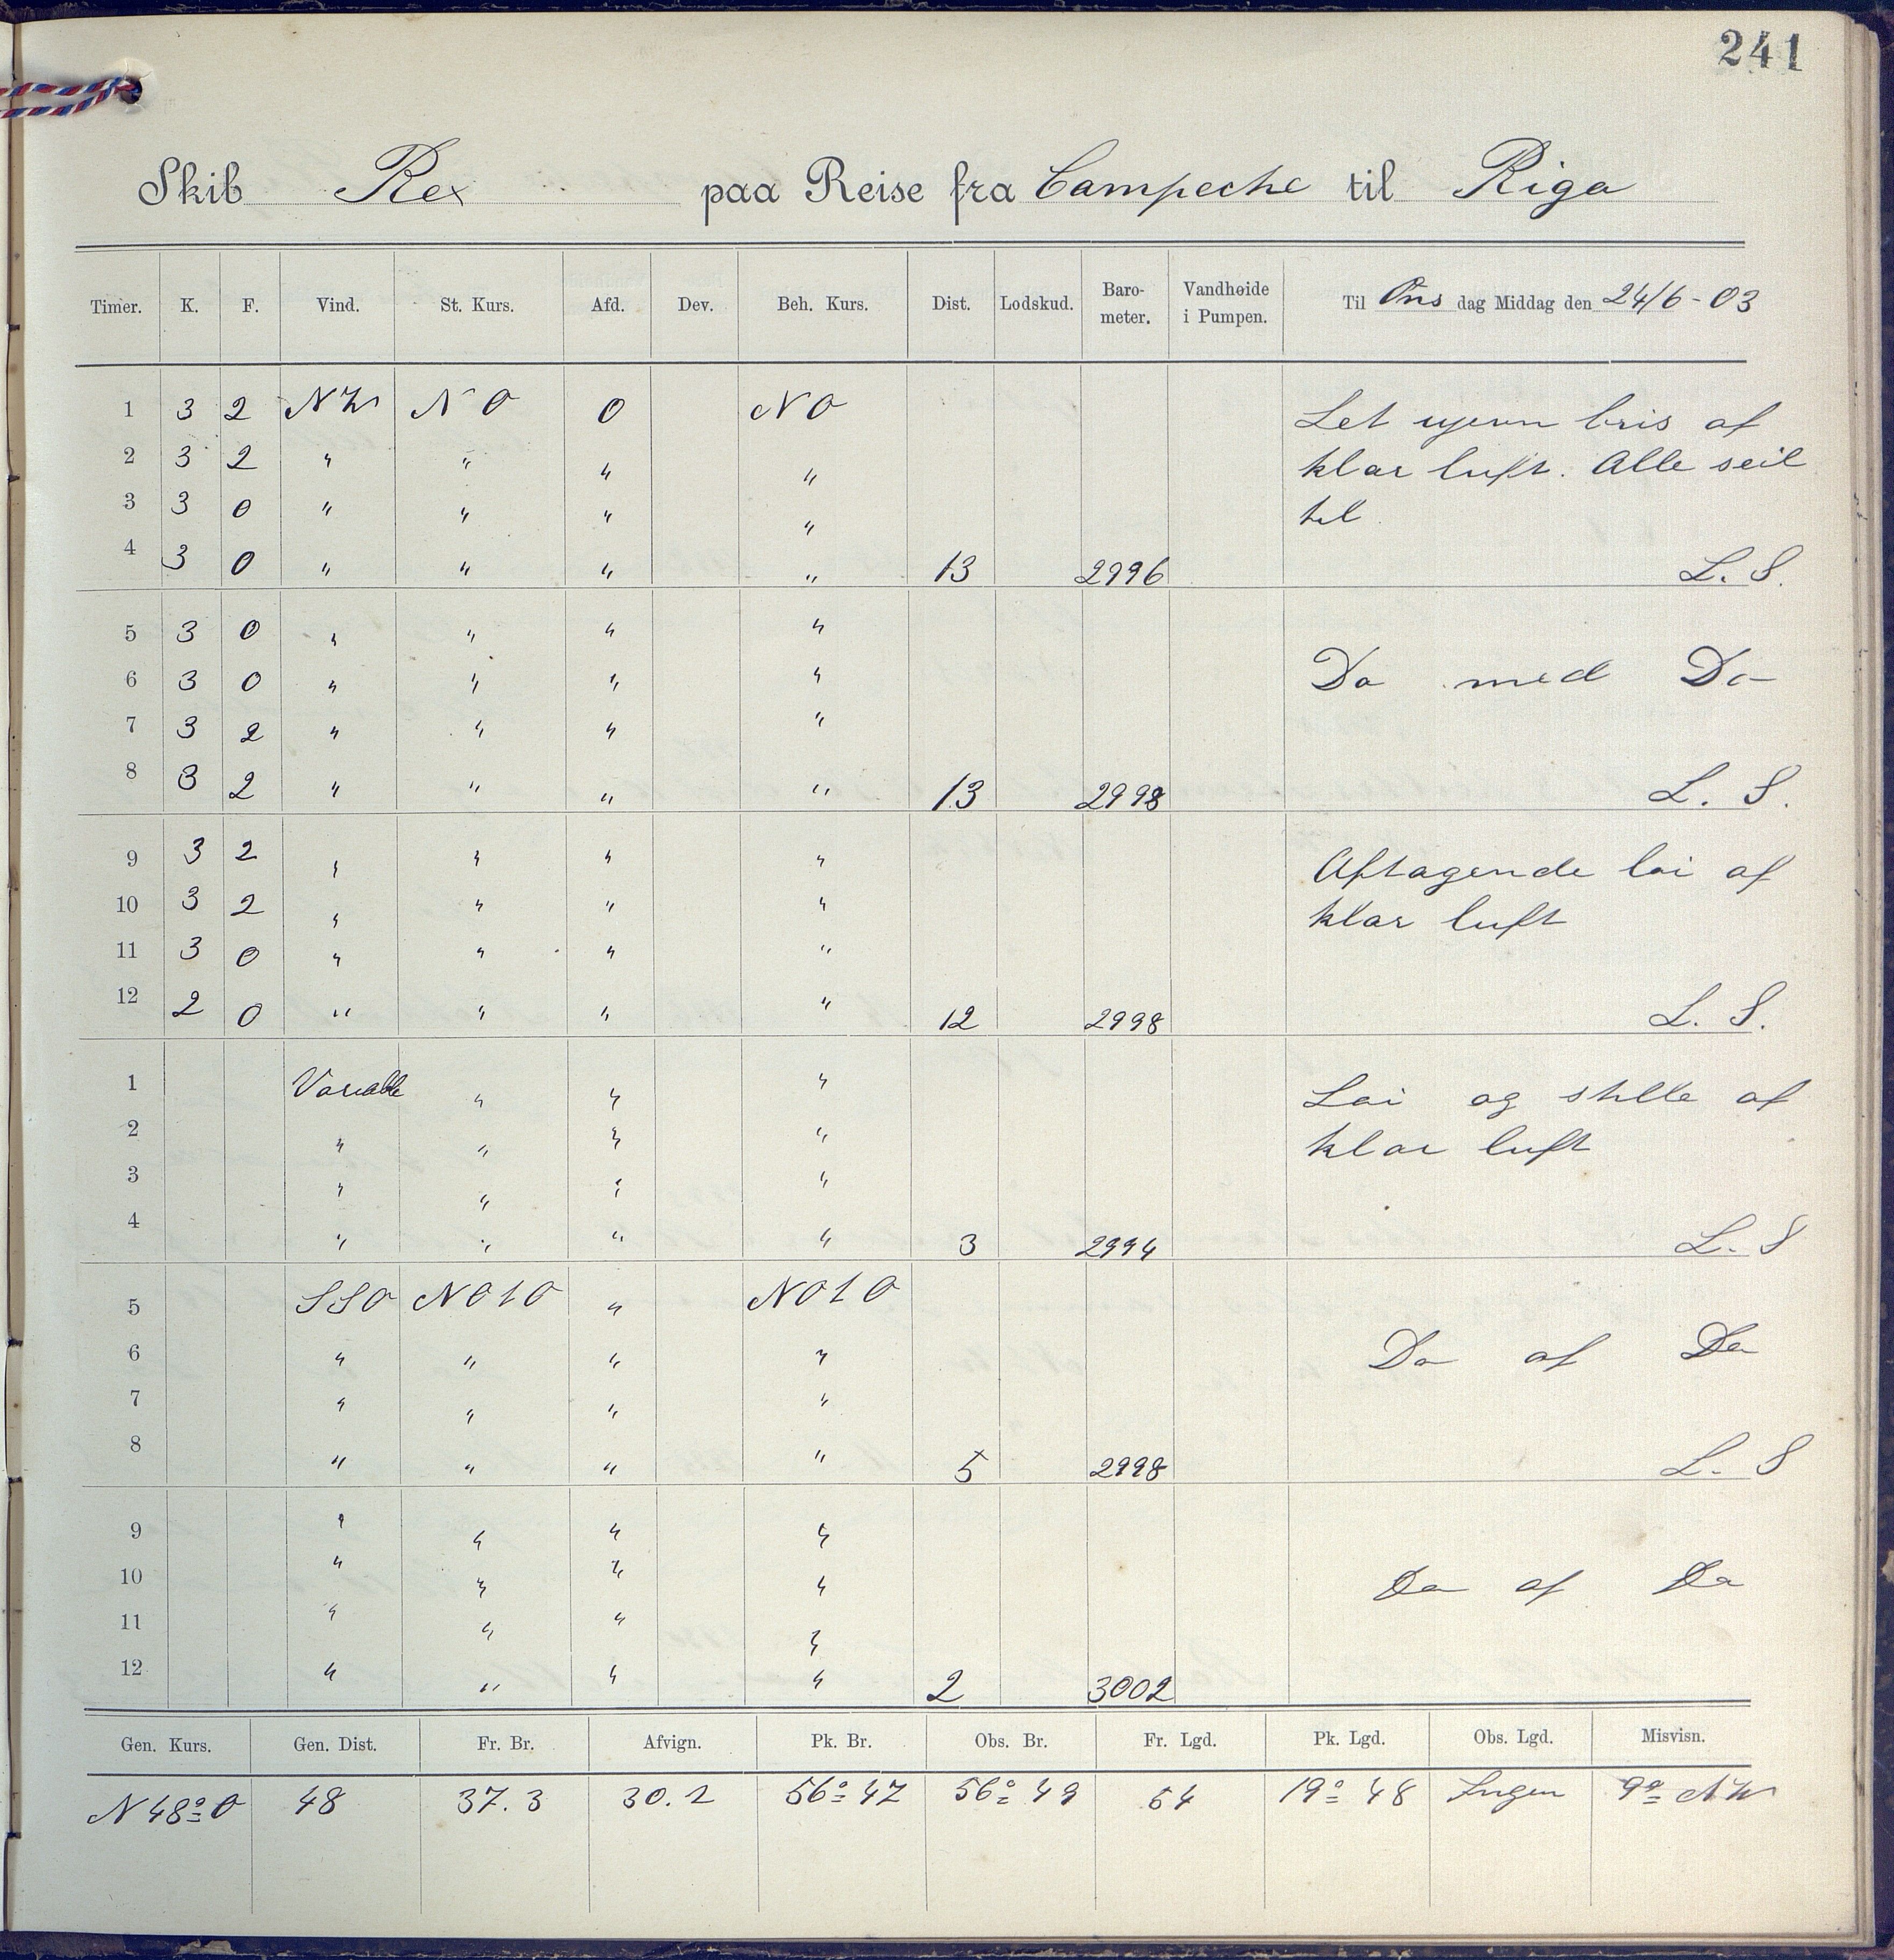 241
Skib Rex paa Reise fra Campeche til Riga
Timer. K. F. Vind. St. Kurs. Afd. Dev. Beh. Kurs. Dist. Lodskud. Baro-meter. Vandhøide i Pumpen. Til Ons dag Middag den 24/6-03
1 3 2 NW NO 0 NO Let ujevn bris af
2 3 2 " " " " klar luft. Alle seil
3 3 0 " " " " til
4 3 0 " " " " 13 2996 L. S.
5 3 0 " " " "
6 3 0 " " " " Do med Do
7 3 2 " " " "
8 3 2 " " " " 13 2998 L. S.
9 3 2 " " " " Aftagende loi af
10 3 2 " " " " klar luft
11 3 0 " " " "
12 2 0 " " " " 12 2998 L. S.
1 Variable " " " Loi og stille af
2 " " " " klar luft
3 " " " "
4 " " " " 3 2994 L. S
5 SSO NOtO " NOtO
6 " " " " Do af Do
7 " " " "
8 " " " " 5 2998 L. S
9 " " " "
10 " " " " Do af Do
11 " " " "
12 " " " " 2 3002
Gen. Kurs. Gen. Dist. Fr. Br. Afvign. Pk. Br. Obs. Br. Fr. Lgd. Pk. Lgd. Obs. Lgd. Misvisn.
N 48° O 48 37.3 30.2 56° 47 56° 49 54 19° 48 Ingen 9° NW